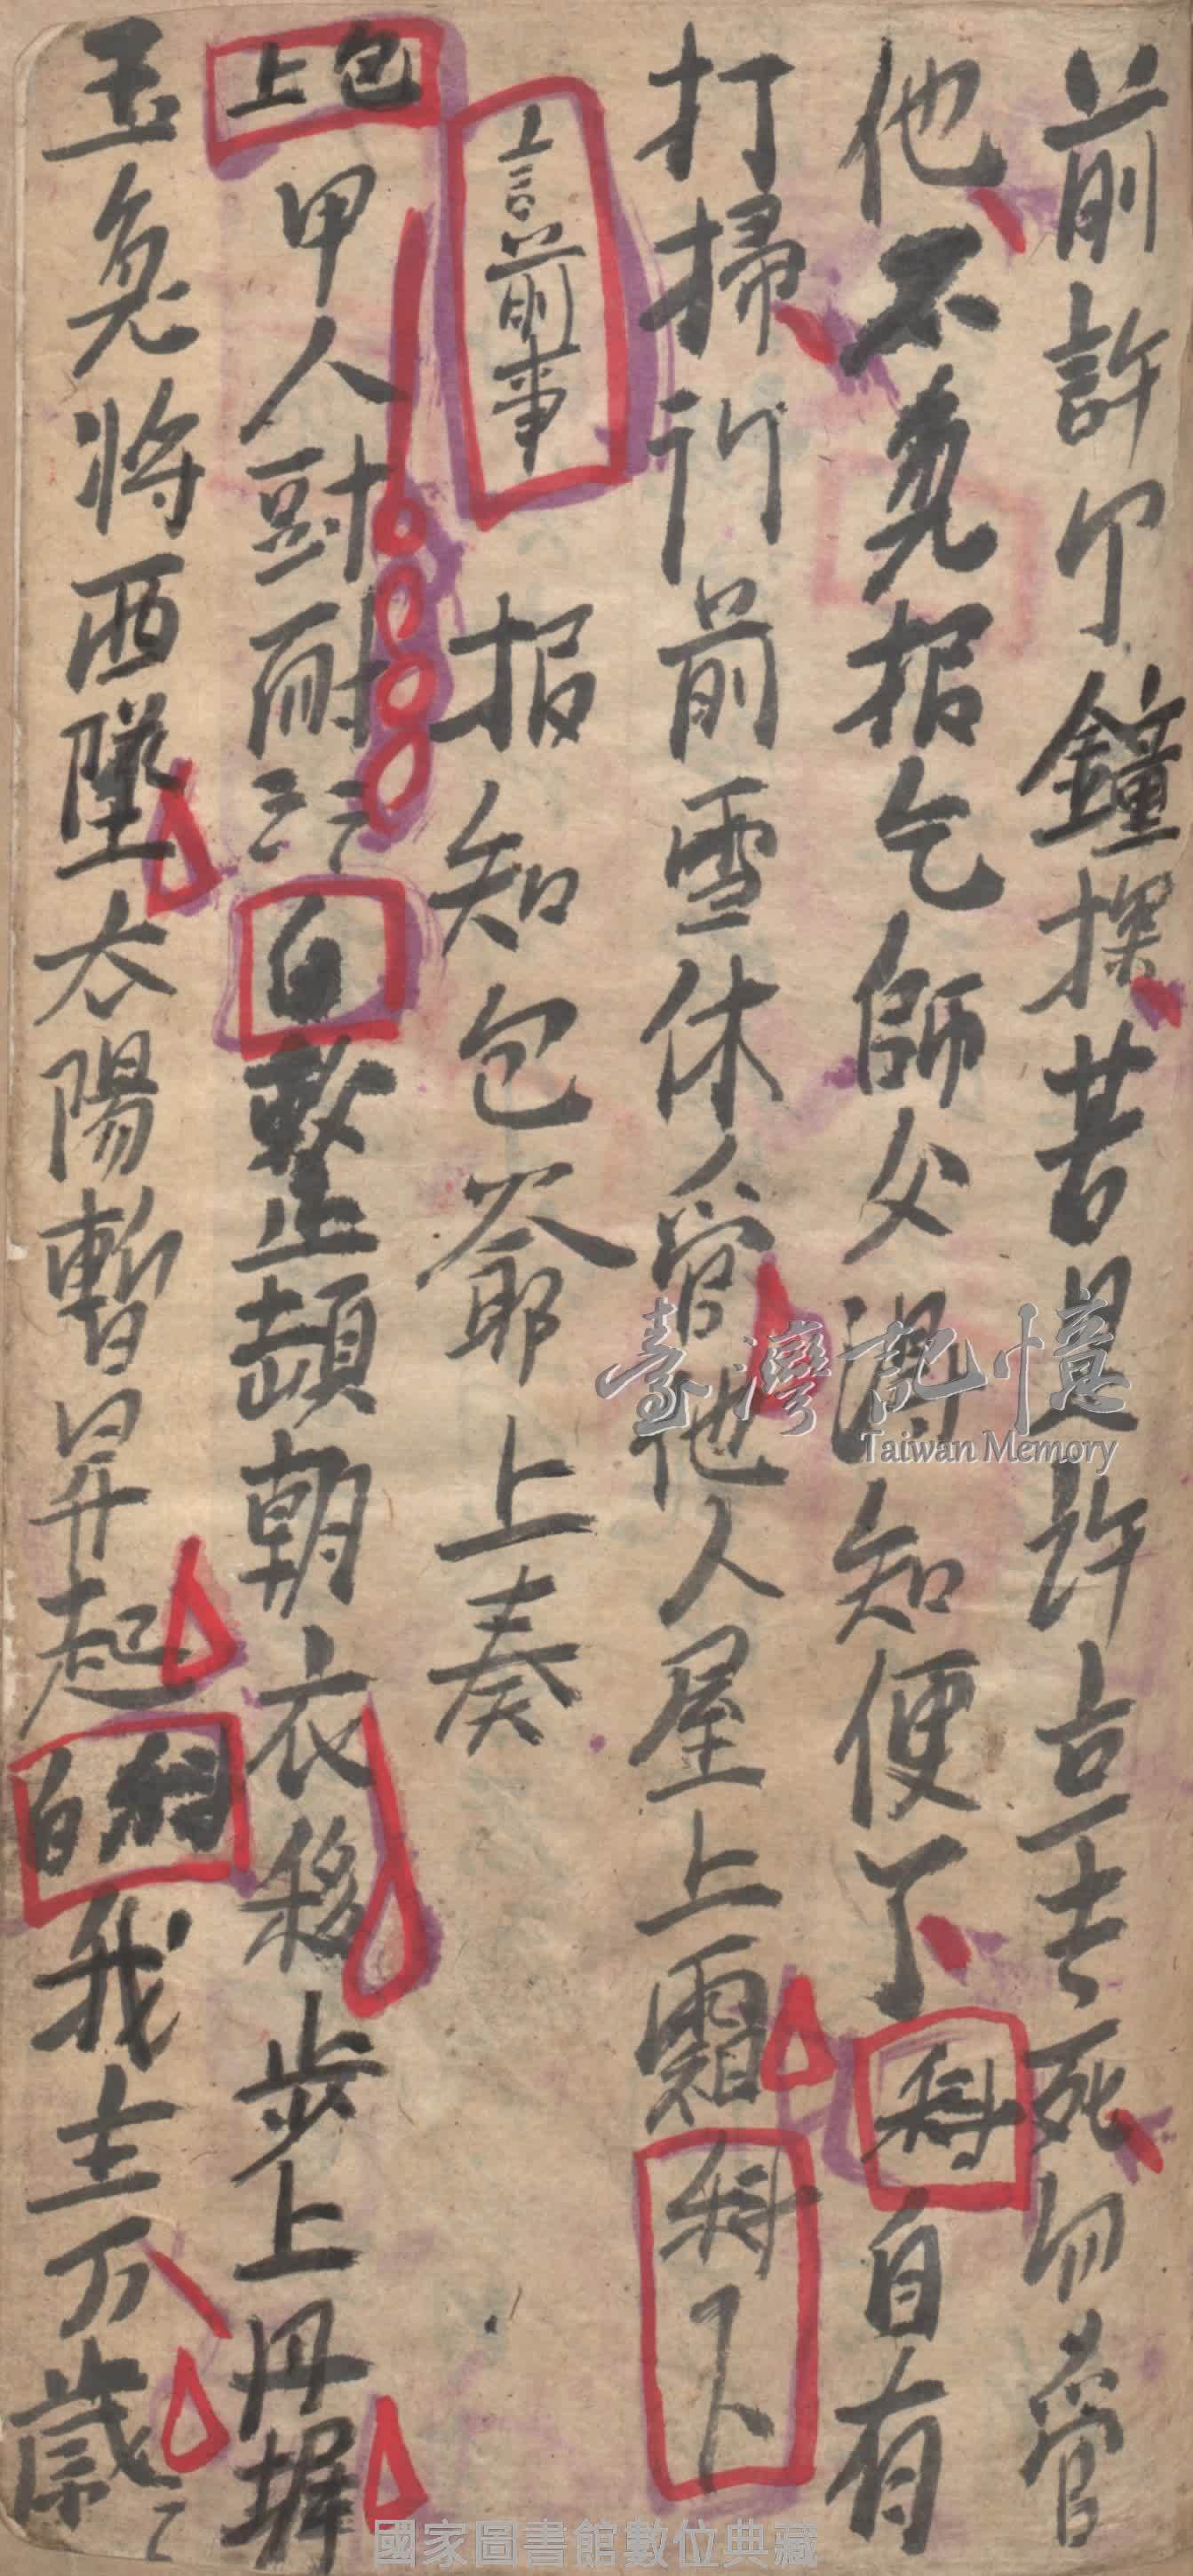 前許个鐘探昔是許占去死勿管
他不免报乞師父得知便了科自有
打掃行前雪休管他人屋上霜科下
上言前事报知包爺上奏
包上甲人討耐〻〻白整頓朝衣移步上丹墀
玉兔將西墜太陽暫昇起科白我主万歲〻
臺灣記憶
Taiwan Memory
國家圖書館數位典藏